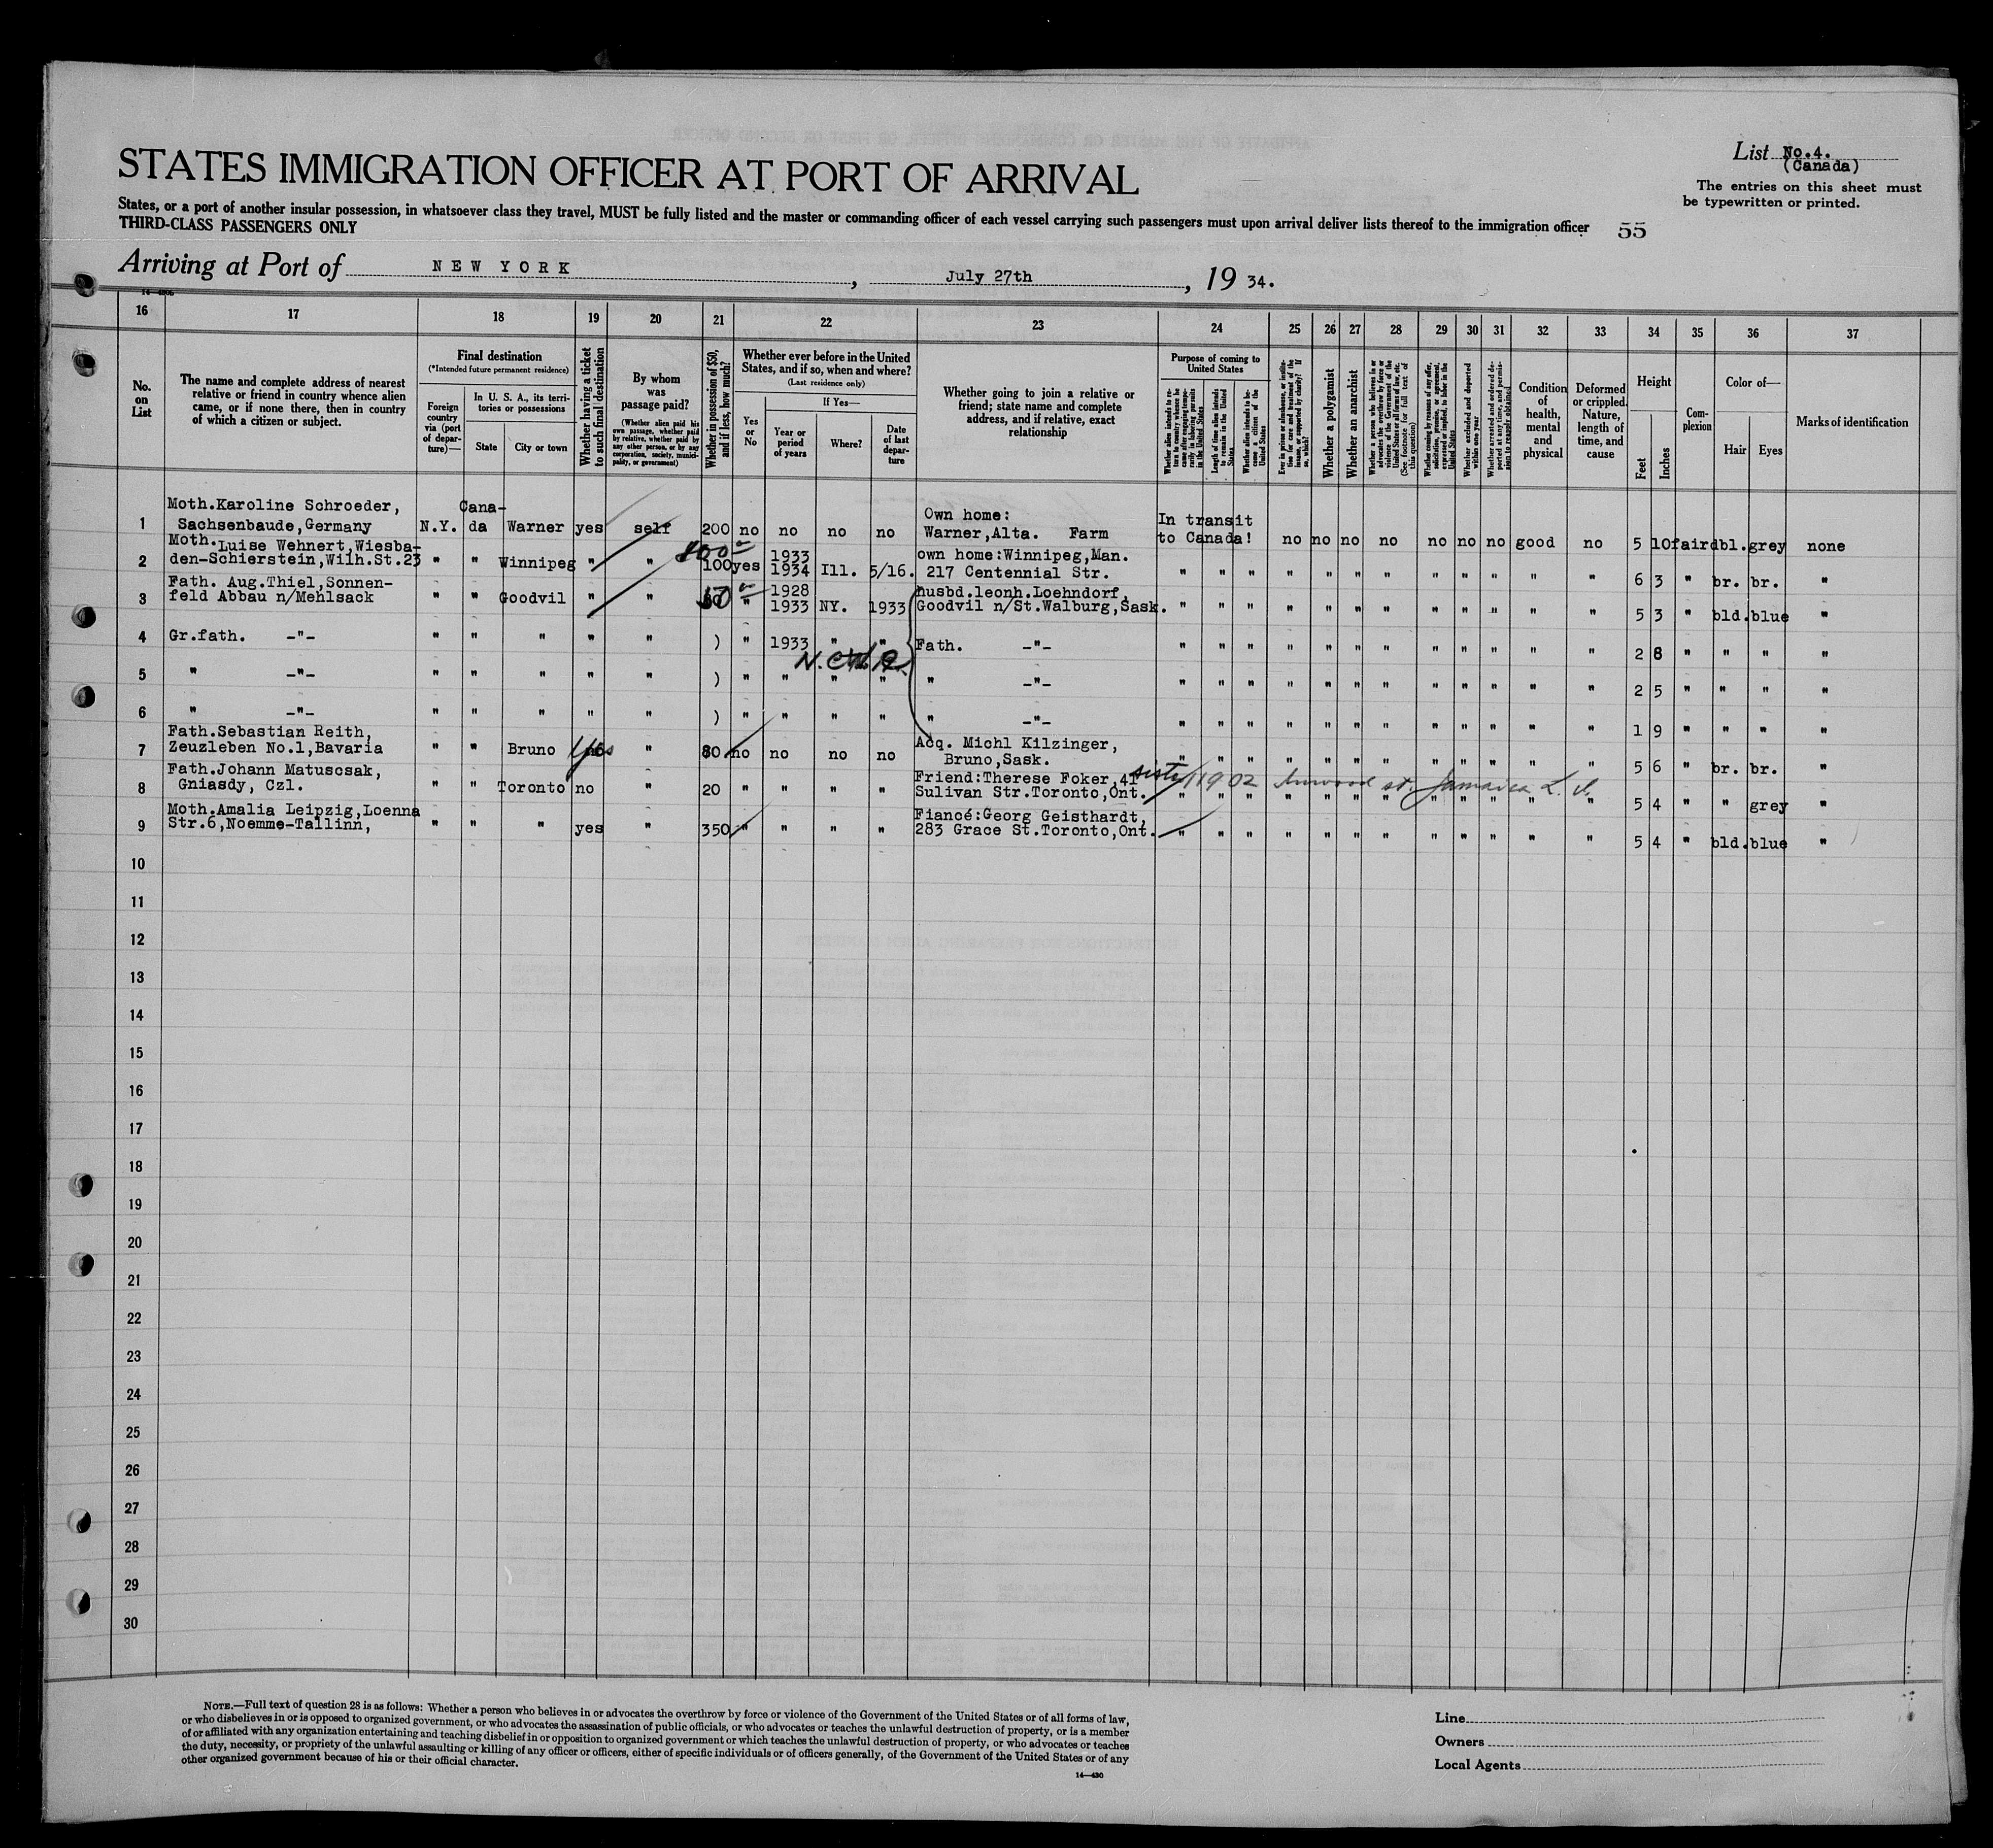 STATES IMMIGRATION OFFICER AT PORT OF ARRIVAL
List No.4.
(Canada)
The entries on this sheet must
be typewritten or printed.
States, or a port of another insular possession, in whatsoever class they travel, MUST be fully listed and the master or commanding officer of each vessel carrying such passengers must upon arrival deliver lists thereof to the immigration officer
THIRD-CLASS PASSENGERS ONLY
55
Arriving at Port of NEW YORK, July 27th, 19 34.
16 17 18 19 20 21 22 23 24 25 26 27 28 29 30 31 32 33 34 35 36 37
No. on List
The name and complete address of nearest relative or friend in country whence alien came, or if none there, then in country of which a citizen or subject.
Final destination
(*Intended future permanent residence)
Foreign country via (port of departure)—
In U. S. A., its territories or possessions
State
City or town
Whether having a ticket to such final destination
By whom was passage paid?
(Whether alien paid his own passage, whether paid by relative, whether paid by any other person, or by any corporation, society, municipality, or government)
Whether in possession of $50, and if less, how much?
Whether ever before in the United States, and if so, when and where?
(Last residence only)
Yes or No
If Yes—
Year or period of years
Where?
Date of last departure
Whether going to join a relative or friend; state name and complete address, and if relative, exact relationship
Purpose of coming to United States
Length of time alien intends to remain in the United States
Whether alien intends to become a citizen of the United States
Whether a polygamist
Whether an anarchist
Whether excluded and deported within one year
Condition of health, mental and physical
Deformed or crippled. Nature, length of time, and cause
Height
Feet
Inches
Complexion
Color of—
Hair
Eyes
Marks of identification
Moth.Karoline Schroeder,
1 Sachsenbaude,Germany N.Y. Cana-da Warner yes self 200 no no no no Own home: Warner,Alta. Farm In transit to Canada! no no no no no no no good no 5 10 fair dbl. grey none
Moth.Luise Wehnert,Wiesba-
2 den-Schierstein,Wilh.St.23 " " Winnipeg " " 100 yes 1933 1934 Ill. 5/16. own home:Winnipeg,Man. 217 Centennial Str. " " " " " " " " " " " " " 6 3 " br. br. "
Fath. Aug.Thiel,Sonnen-
3 feld Abbau n/Mehlsack " " Goodvil " " 50 " 1928 1933 NY. 1933 husbd.leonh.Loehndorf, Goodvil n/St.Walburg,Sask. " " " " " " " " " " " " 5 3 " bld. blue "
4 Gr.fath. -"- " " " " " ) " 1933 " " Father. -"- " " " " " " " " " " " " 2 8 " " " "
5 " -"- " " " " " ) " " " " " -"- " " " " " " " " " " " " 2 5 " " " "
6 " -"- " " " " " ) " " " " " -"- " " " " " " " " " " " " 1 9 " " " "
Fath.Sebastian Reith,
7 Zeuzleben No.1,Bavaria " " Bruno Yes " 80. no no no no Acq. Michl Kilzinger, Bruno,Sask. " " " " " " " " " " " " 5 6 " br. br. "
Fath.Johann Matuscsak,
8 Gniasdy, Czl. " " Toronto no " 20 " " " " Friend:Therese Foker,41 Sulivan Str.Toronto,Ont. sister 11902 st. Jamaica L. I. " " " " " " " " " " " " 5 4 " " grey "
Moth.Amalia Leipzig,Loenna
9 Str.6,Noemme-Tallinn, " " " yes " 350 " " " " Fiancé:Georg Geisthardt, 283 Grace St.Toronto,Ont. " " " " " " " " " " " " 5 4 " bld. blue "
10
11
12
13
14
15
16
17
18
19
20
21
22
23
24
25
26
27
28
29
30
NOTE.—Full text of question 28 is as follows: Whether a person who believes in or advocates the overthrow by force or violence of the Government of the United States or of all forms of law,
or who disbelieves in or is opposed to organized government, or who advocates the assassination of public officials, or who advocates or teaches the unlawful destruction of property, or is a member
of or affiliated with any organization entertaining and teaching disbelief in or opposition to organized government or which teaches the unlawful destruction of property, or who advocates or teaches
the duty, necessity, or propriety of the unlawful assaulting or killing of any officer or officers, either of specific individuals or of officers generally, of the Government of the United States or of any
other organized government because of his or their official character.
14—430
Line
Owners
Local Agents